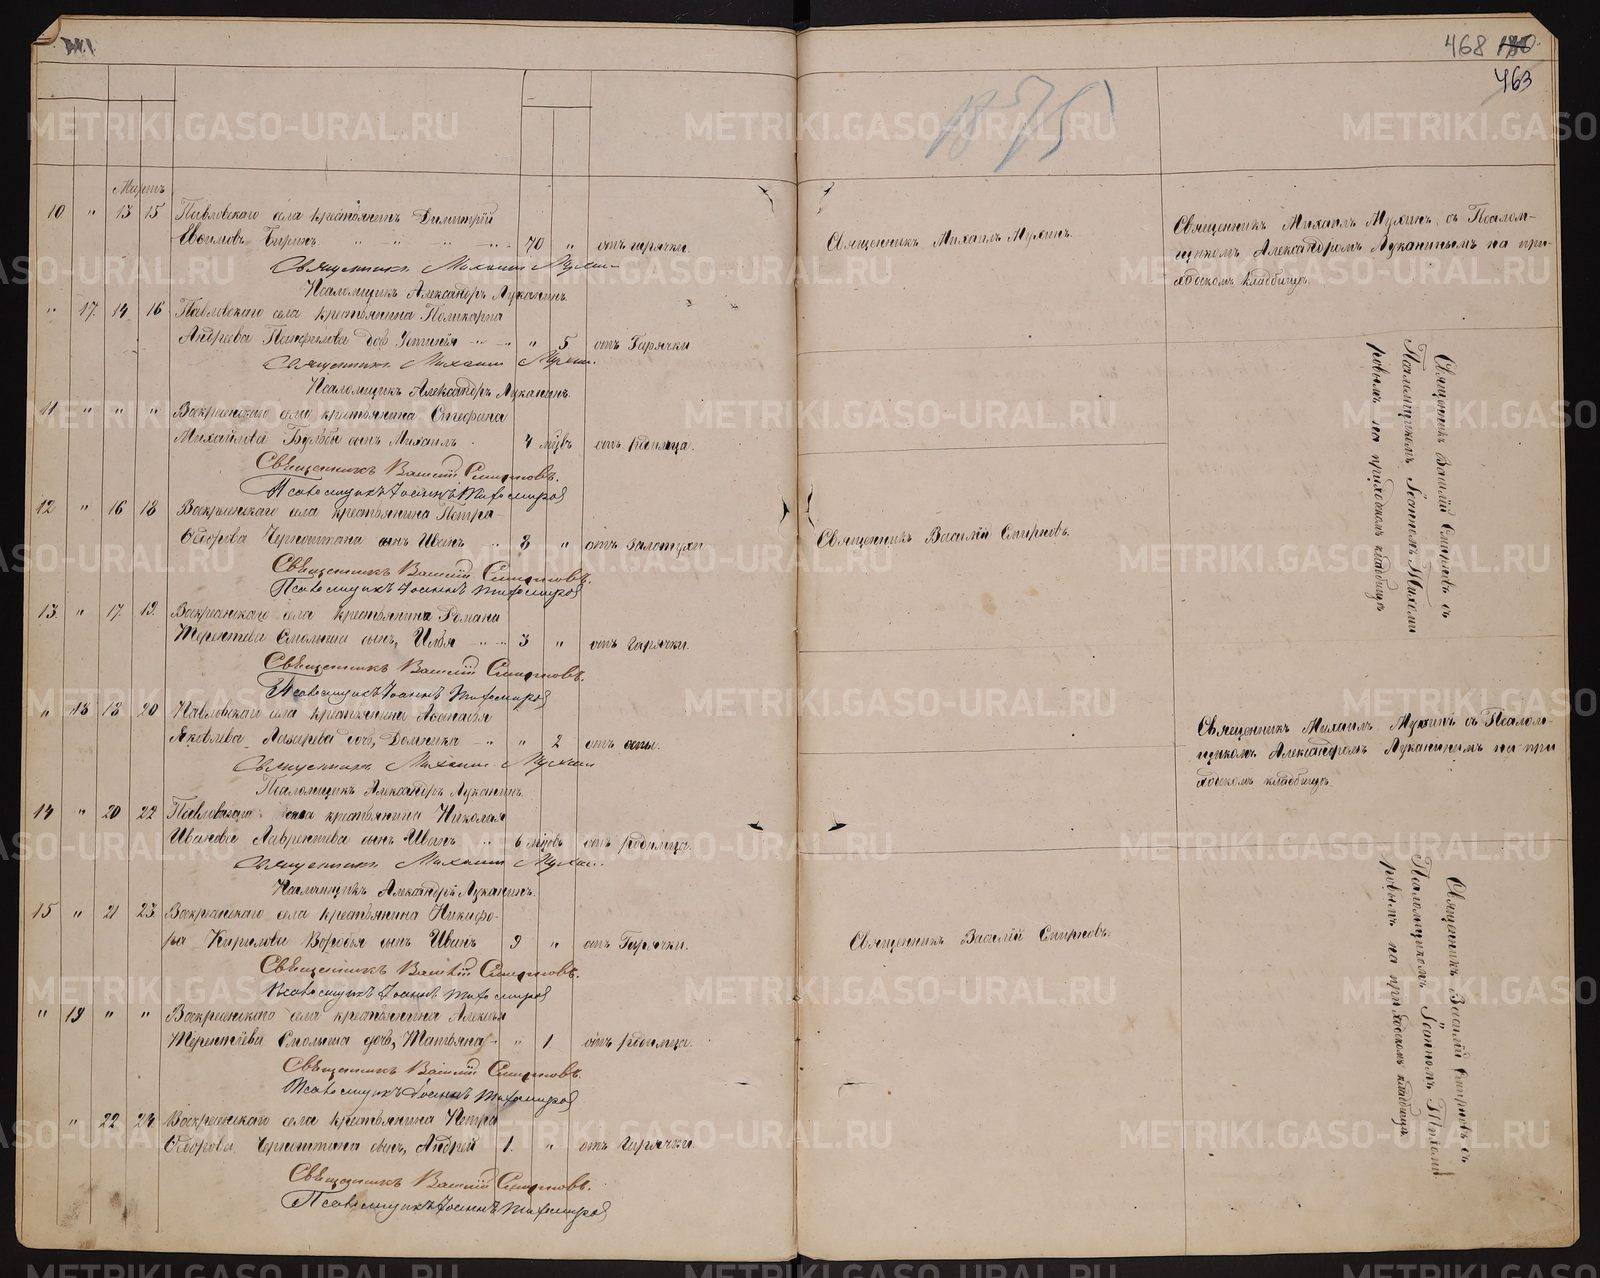 468 180.
463
1875
Мартъ
10 " 13 15 Павловскаго села крестьянинъ Димитрій
Евѳимовъ Бирин. 70 " отъ горячки.
Священникъ Михаилъ Мухин
Псаломщикъ Александръ Луканинъ.
" 17. 14 16 Павловскаго села крестьянина Поликарпа
Андреева Панфилова доч Устинія " 5 отъ Горячки
Священникъ Михаилъ Мухин.
Псаломщикъ Александръ Луканинъ.
11 " " " Воскресенскаго села крестьянина Стефана
Михайлова сынъ Михаилъ 4 мѣсв отъ родимца.
Священникъ Василій Смирновъ.
Псаломщикъ Іоаннъ Тихомиров
12 " 16 18 Воскресенскаго села крестьянина Петра
Ѳедорова сынъ Иванъ 8 " отъ Золотухи
Священникъ Василій Смирновъ.
Псаломщикъ Іоаннъ Тихомиров
13. " 17. 19. Воскресенскаго села крестьянина Романа
Терентьева Смолина сынъ, Илья 3 " отъ Горячки.
Священникъ Василій Смирновъ.
Псаломщикъ Іоаннъ Тихомиров
" 18 18 20 Павловскаго села крестьянина Аѳонасія
Яковлева Лазарева доч, Домника " 2 отъ оспы.
Священникъ Михаилъ Мухин
Псаломщикъ Александръ Луканинъ.
14 " 20 22 Павловскаго села крестьянина Николая
Иванова Лаврентьева сынъ Иванъ 6 мѣсцовъ отъ Родимца.
Священникъ Михаилъ Мухин.
Псаломщикъ Александръ Луканинъ.
15 " 21 23 Воскресенскаго села крестьянина Никифо-
ра Кирилова Воробья сынъ Иванъ 9 " отъ Горячки.
Священникъ Василій Смирновъ.
Псаломщикъ Іоаннъ Тихомиров
" 19 " " Воскресенскаго села крестьянина Алексѣя
Терентьева Смолина дочь, Татьяна " 1 отъ Родимца.
Священникъ Василій Смирновъ.
Псаломщикъ Іоаннъ Тихомиров
" 22 24 Воскресенскаго села крестьянина Петра
Ѳедорова сынъ, Андрей 1. " отъ Горячки.
Священникъ Василій Смирновъ.
Псаломщикъ Іоаннъ Тихомиров
Священникъ Михаилъ Мухинъ.
Священникъ Василій Смирновъ.
Священникъ Василій Смирновъ.
Священникъ Михаилъ Мухинъ съ Псалом-
щикомъ Александромъ Луканинымъ на при-
ходскомъ кладбищѣ.
Священникъ Василій Смирновъ съ
Псаломщикомъ Іоанномъ Тихоми
ровымъ на приходскомъ кладбищѣ
Священникъ Михаилъ Мухинъ съ Псалом-
щикомъ Александромъ Луканинымъ на при
ходскомъ кладбищѣ
Священникъ Василій Смирновъ съ
Псаломщикомъ Іоанномъ Тихоми
ровымъ на приходскомъ кладбищѣ
METRIKI.GASO-URAL.RU